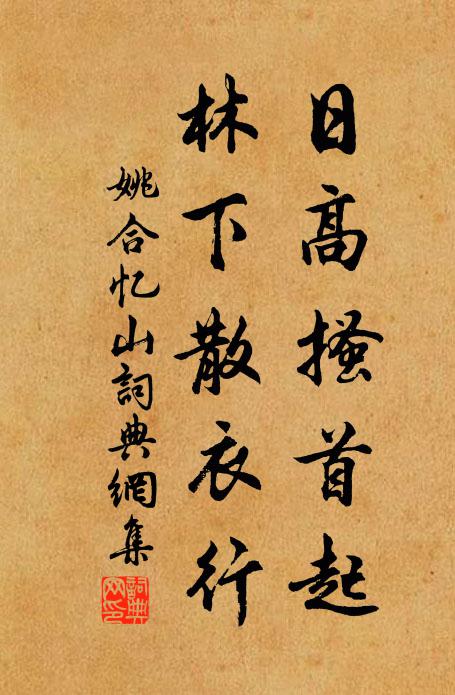 日高搔首起
林下散衣行
姚合忆山詞典網集
詞典網印